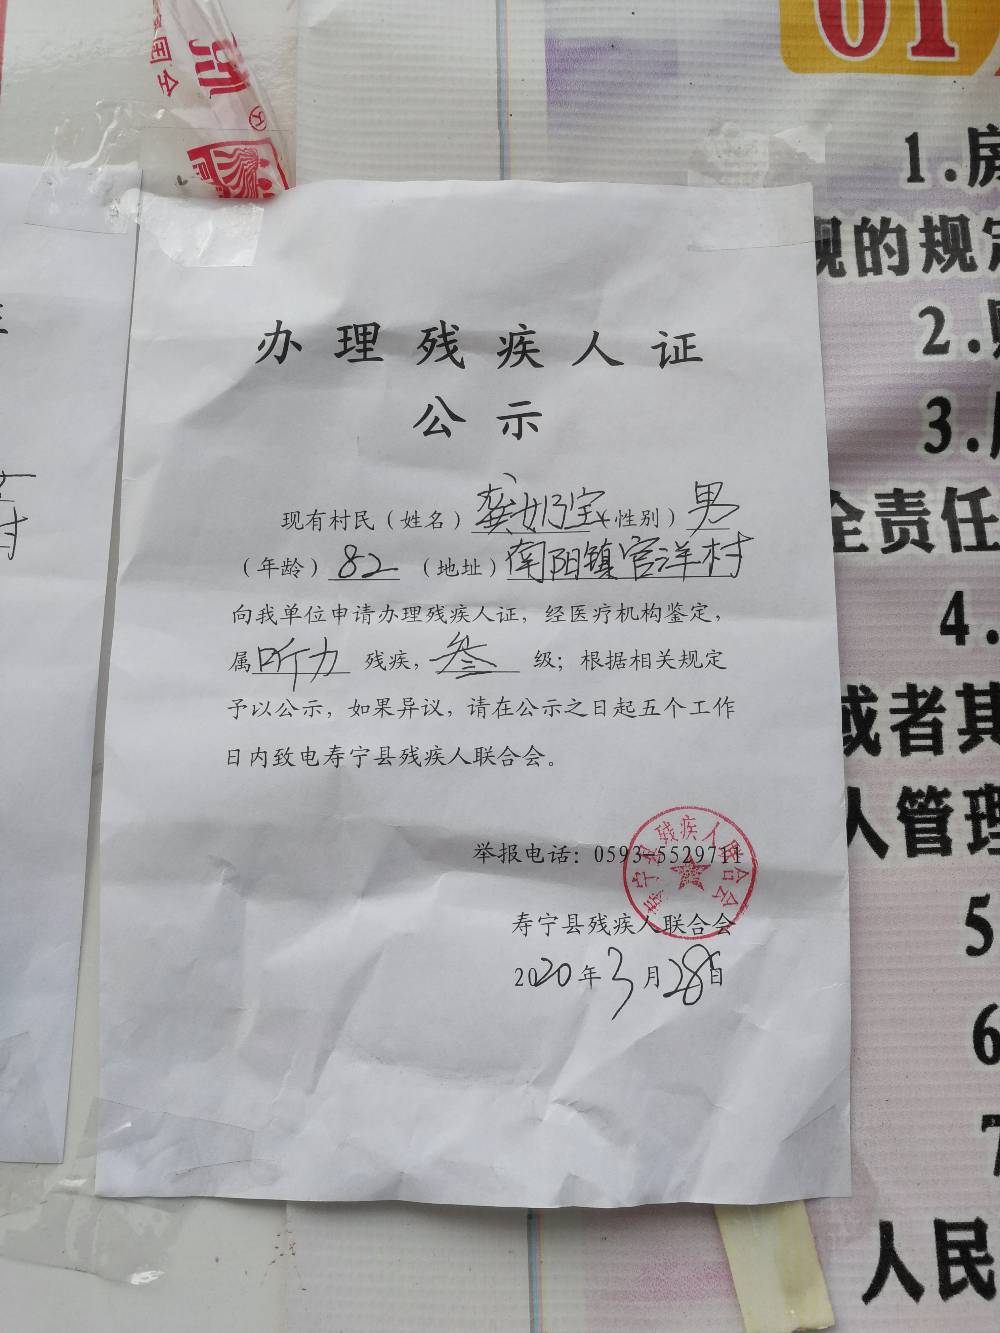 办理残疾人证
公示
现有村民（姓名）龚奶宝（性别）男
（年龄）82（地址）南阳镇官洋村
向我单位申请办理残疾人证，经医疗机构鉴定，
属听力残疾，叁级；根据相关规定
予以公示，如果异议，请在公示之日起五个工作
日内致电寿宁县残疾人联合会。
举报电话：0593-5529711
寿宁县残疾人联合会
寿宁县残疾人联合会
2020年3月28日
01
1.房
规的规定
2.
3.
全责任
4.
或者其
人管理
5
6
7
人民
村